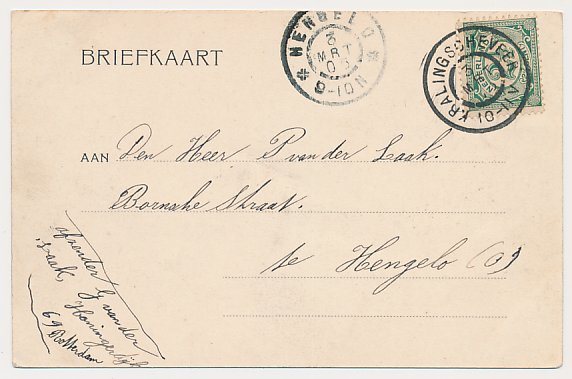 BRIEFKAART
* HENGELO *
2
MRT
8-10N
KRALINGSCHEVEER
AAN Den Heer P van der Laak.
Bornsche Straat.
te Hengelo (O)
afzender G van der
Laak,
Honingerdijk
69 Rotterdam